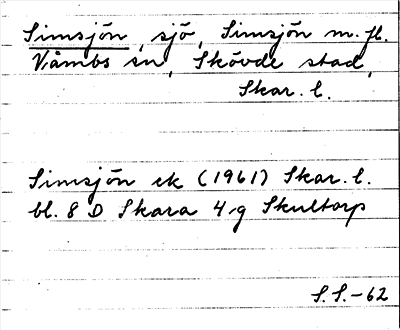 Simsjön, sjö, Simsjön m. fl.
Våmbs sn, Skövde stad,
Skar. l.
Simsjön ek (1961) Skar. l.
bl. 8 D Skara 4 g Skultorp
S.S.-62